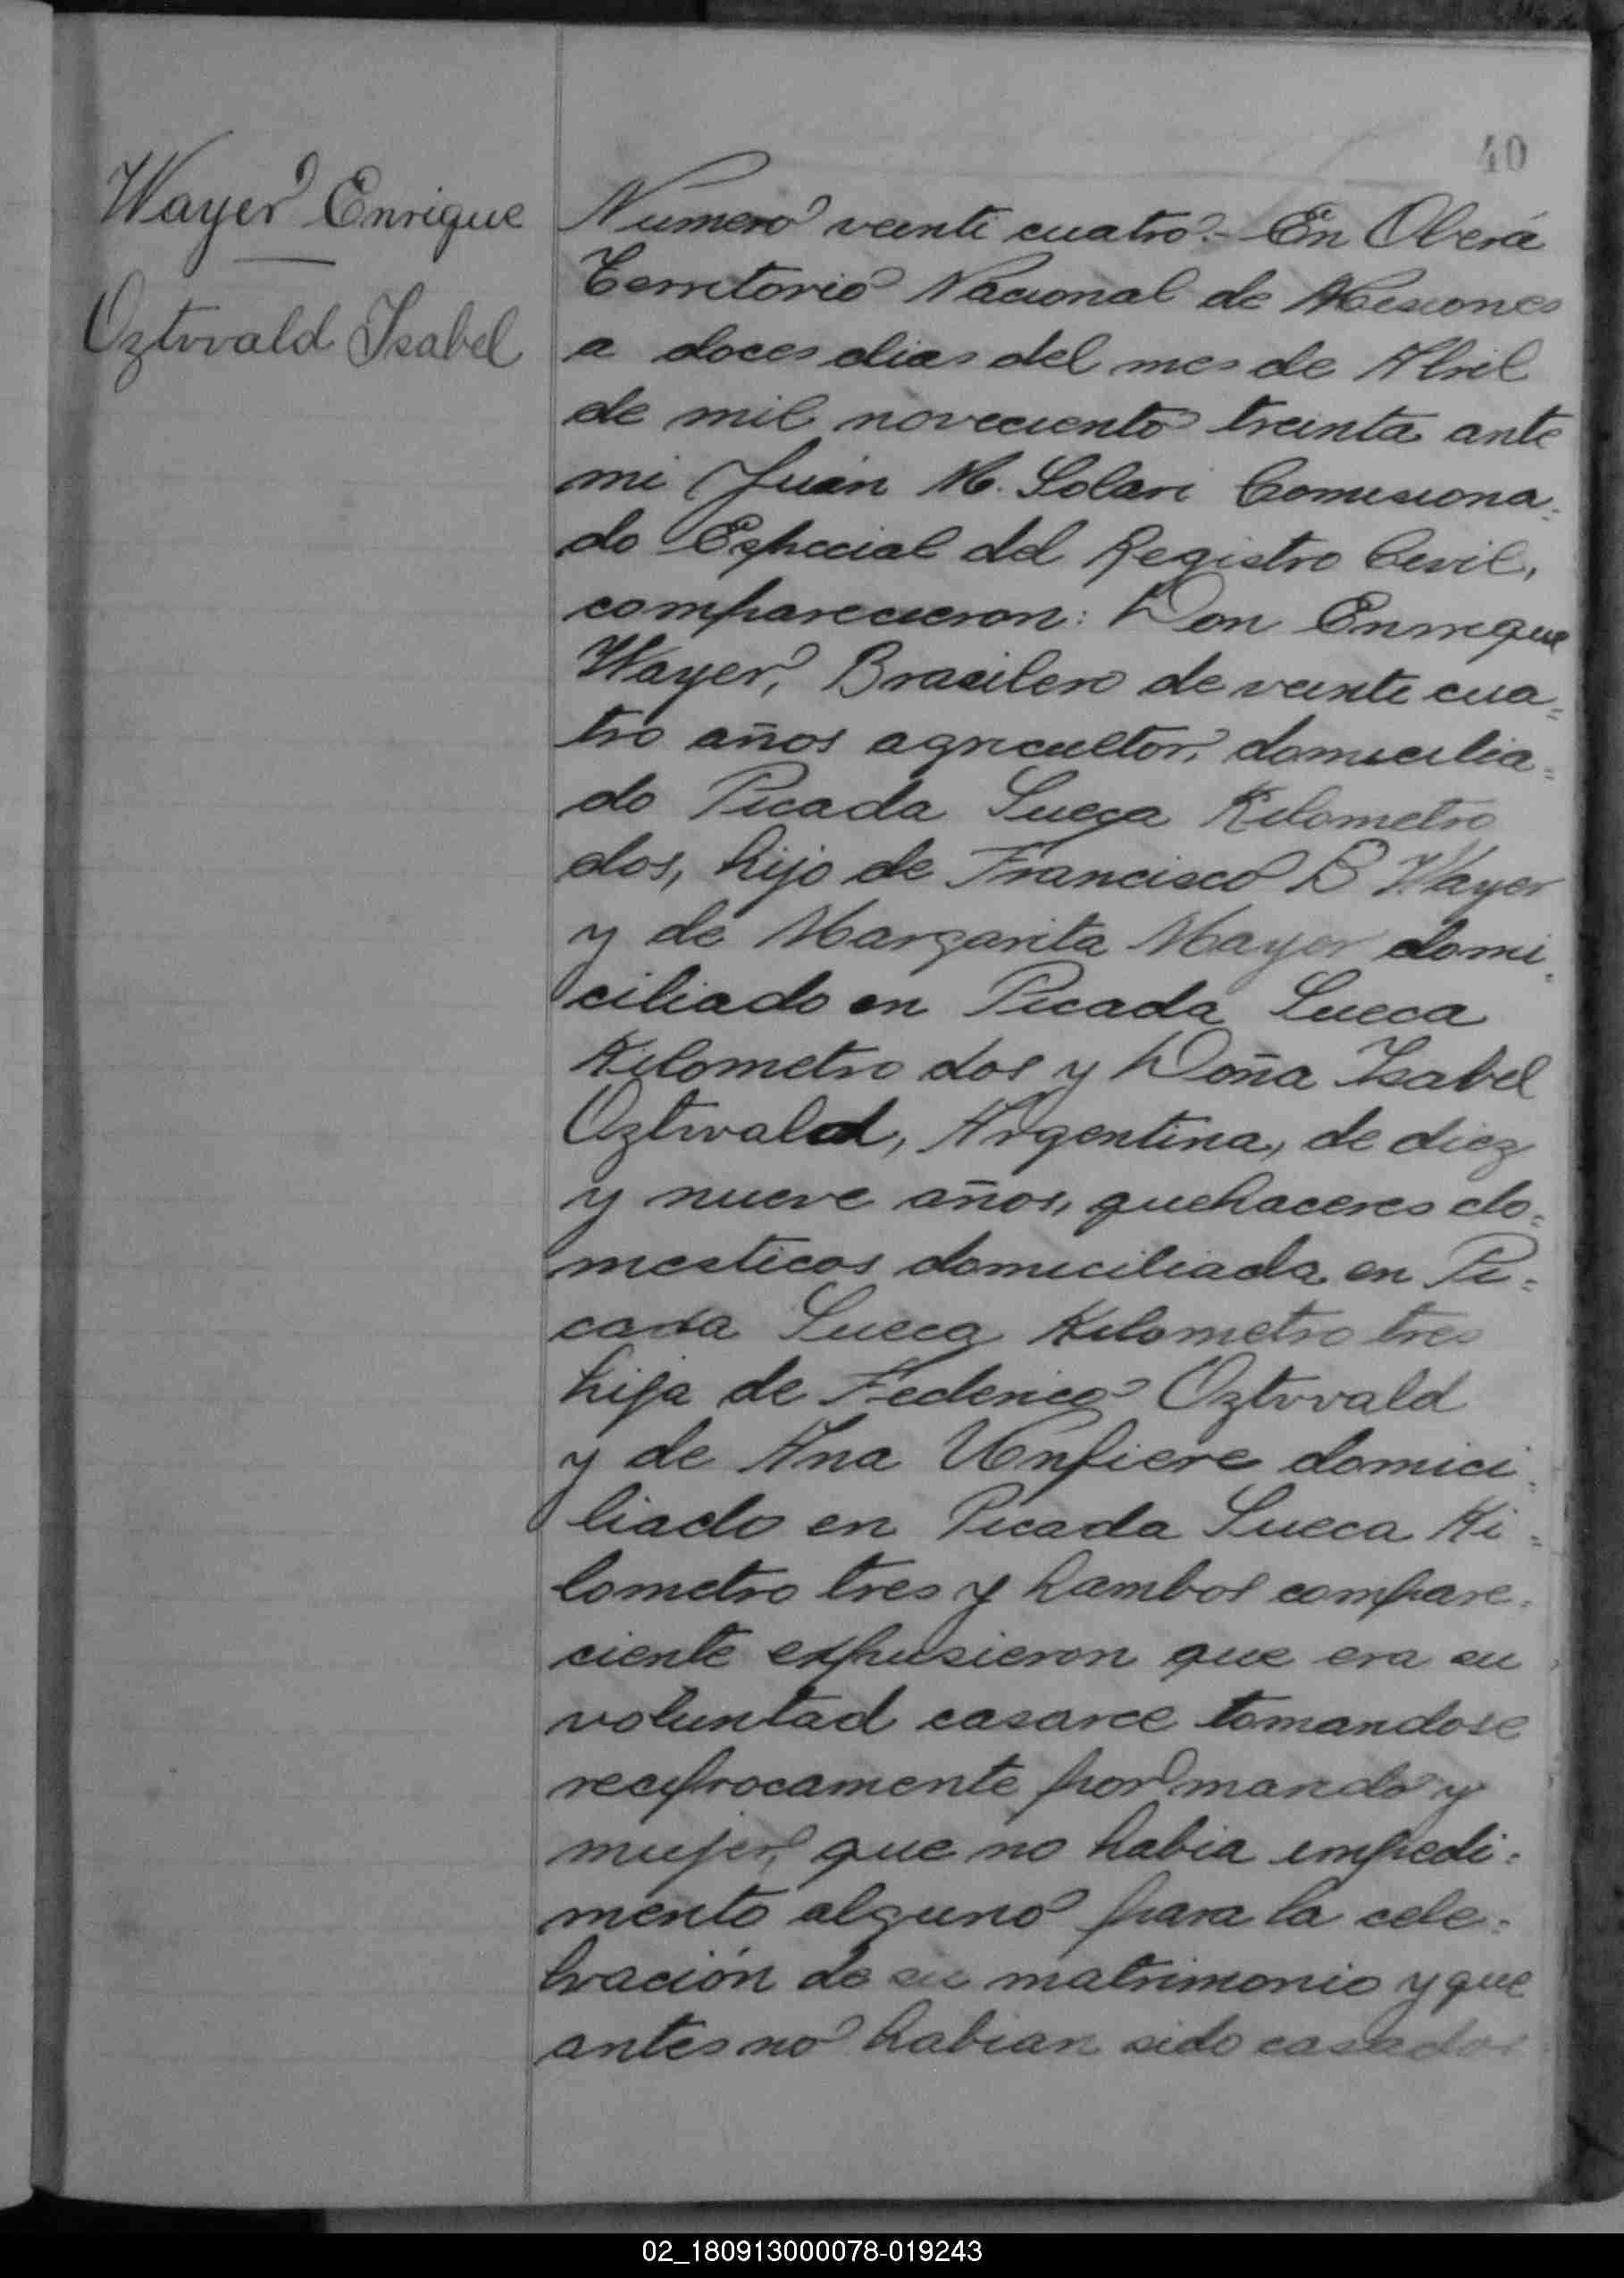 40
Wayer Enrique
Oztwald Isabel
Numero veinti cuatro.- En Oberá
Territorio Nacional de Misiones
a doces dias del mes de Abril
de mil noveciento treinta ante
mi Juan M. Solari Comisiona=
do Especial del Registro Civil,
comparecieron: Don Enrrique
Wayer, Brasilero de veinte cua=
tro años agricultor, domicilia=
do Picada Sueca Kilometro
dos, hijo de Francisco B Wayer
y de Margarita Mayer domi=
ciliado en Picada Sueca
Kilometro dos y Doña Isabel
Oztwald, Argentina, de diez
y nueve años, quehaceres do=
mesticos domiciliada en Pi=
cada Sueca Kilometro tres
hija de Federico Oztwald
y de Ana Unfiere domici=
liado en Picada Sueca Ki=
lometro tres y hambos compare=
ciente expusieron que era su
voluntad casarce tomandose
reciprocamente por marido y
mujer, que no habia impedi=
mento alguno para la cele=
bración de su matrimonio y que
antes no habian sido casados
02_180913000078-019243